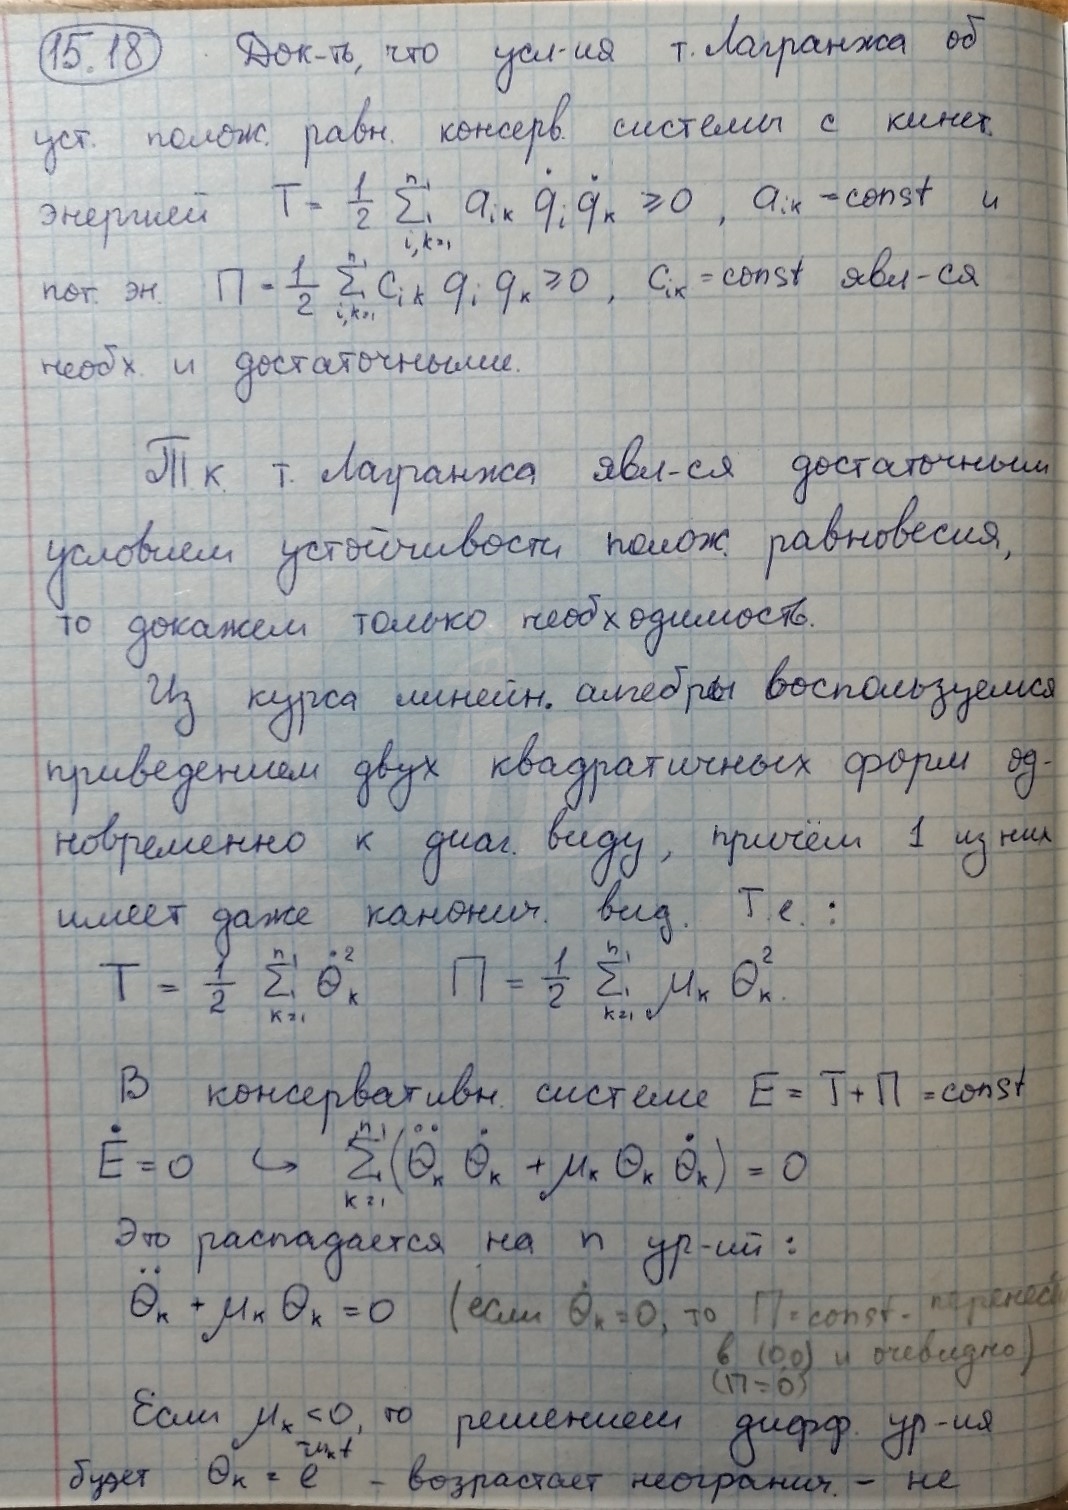 15.18 . Док-ть, что усл-ия т. Лагранжа об
уст. полож. равн. консерв. системы с кинет.
энергией T = 1/2 Σ_{i,k=1}^{n} a_{ik} q̇_i q̇_k ≥ 0 , a_{ik} = const и
пот. эн. П = 1/2 Σ_{i,k=1}^{n} c_{ik} q_i q_k ≥ 0 , c_{ik} = const явл-ся
необх. и достаточными.
Т.к. т. Лагранжа явл-ся достаточным
условием устойчивости полож. равновесия,
то докажем только необходимость.
Из курса линейн. алгебры воспользуемся
приведением двух квадратичных форм од-
новременно к диаг. виду, причём 1 из них
имеет даже канонич. вид. Т.е. :
T = 1/2 Σ_{k=1}^{n} Θ̇_k² П = 1/2 Σ_{k=1}^{n} μ_k Θ_k².
В консервативн. системе E = T + П = const
Ė = 0 ↪ Σ_{k=1}^{n} (Θ̈_k Θ̇_k + μ_k Θ_k Θ̇_k) = 0
Это распадается на n ур-ий :
Θ̈_k + μ_k Θ_k = 0 (если Θ̇_k = 0, то П = const -
в (0,0) и очевидно)
(П = 0)
Если μ_k < 0, то решением дифф. ур-ия
будет Θ_k = e - возрастает неогранич. - не